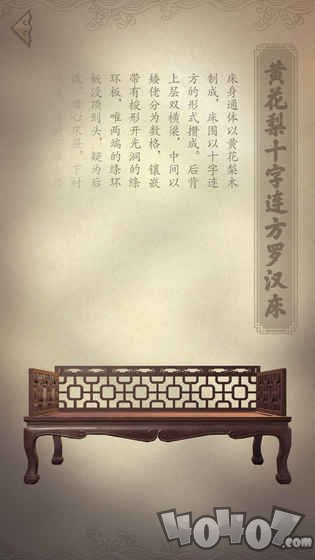 黄花梨十字连方罗汉床
床身通体以黄花梨木
制成，床围以十字连
方的形式攒成。后背
上层双横梁，中间以
矮佬分为数格，镶嵌
带有梭形开光洞的绦
环板，唯两端的绦环
板没顶到头，疑为后
心床，下衬
40407
.com